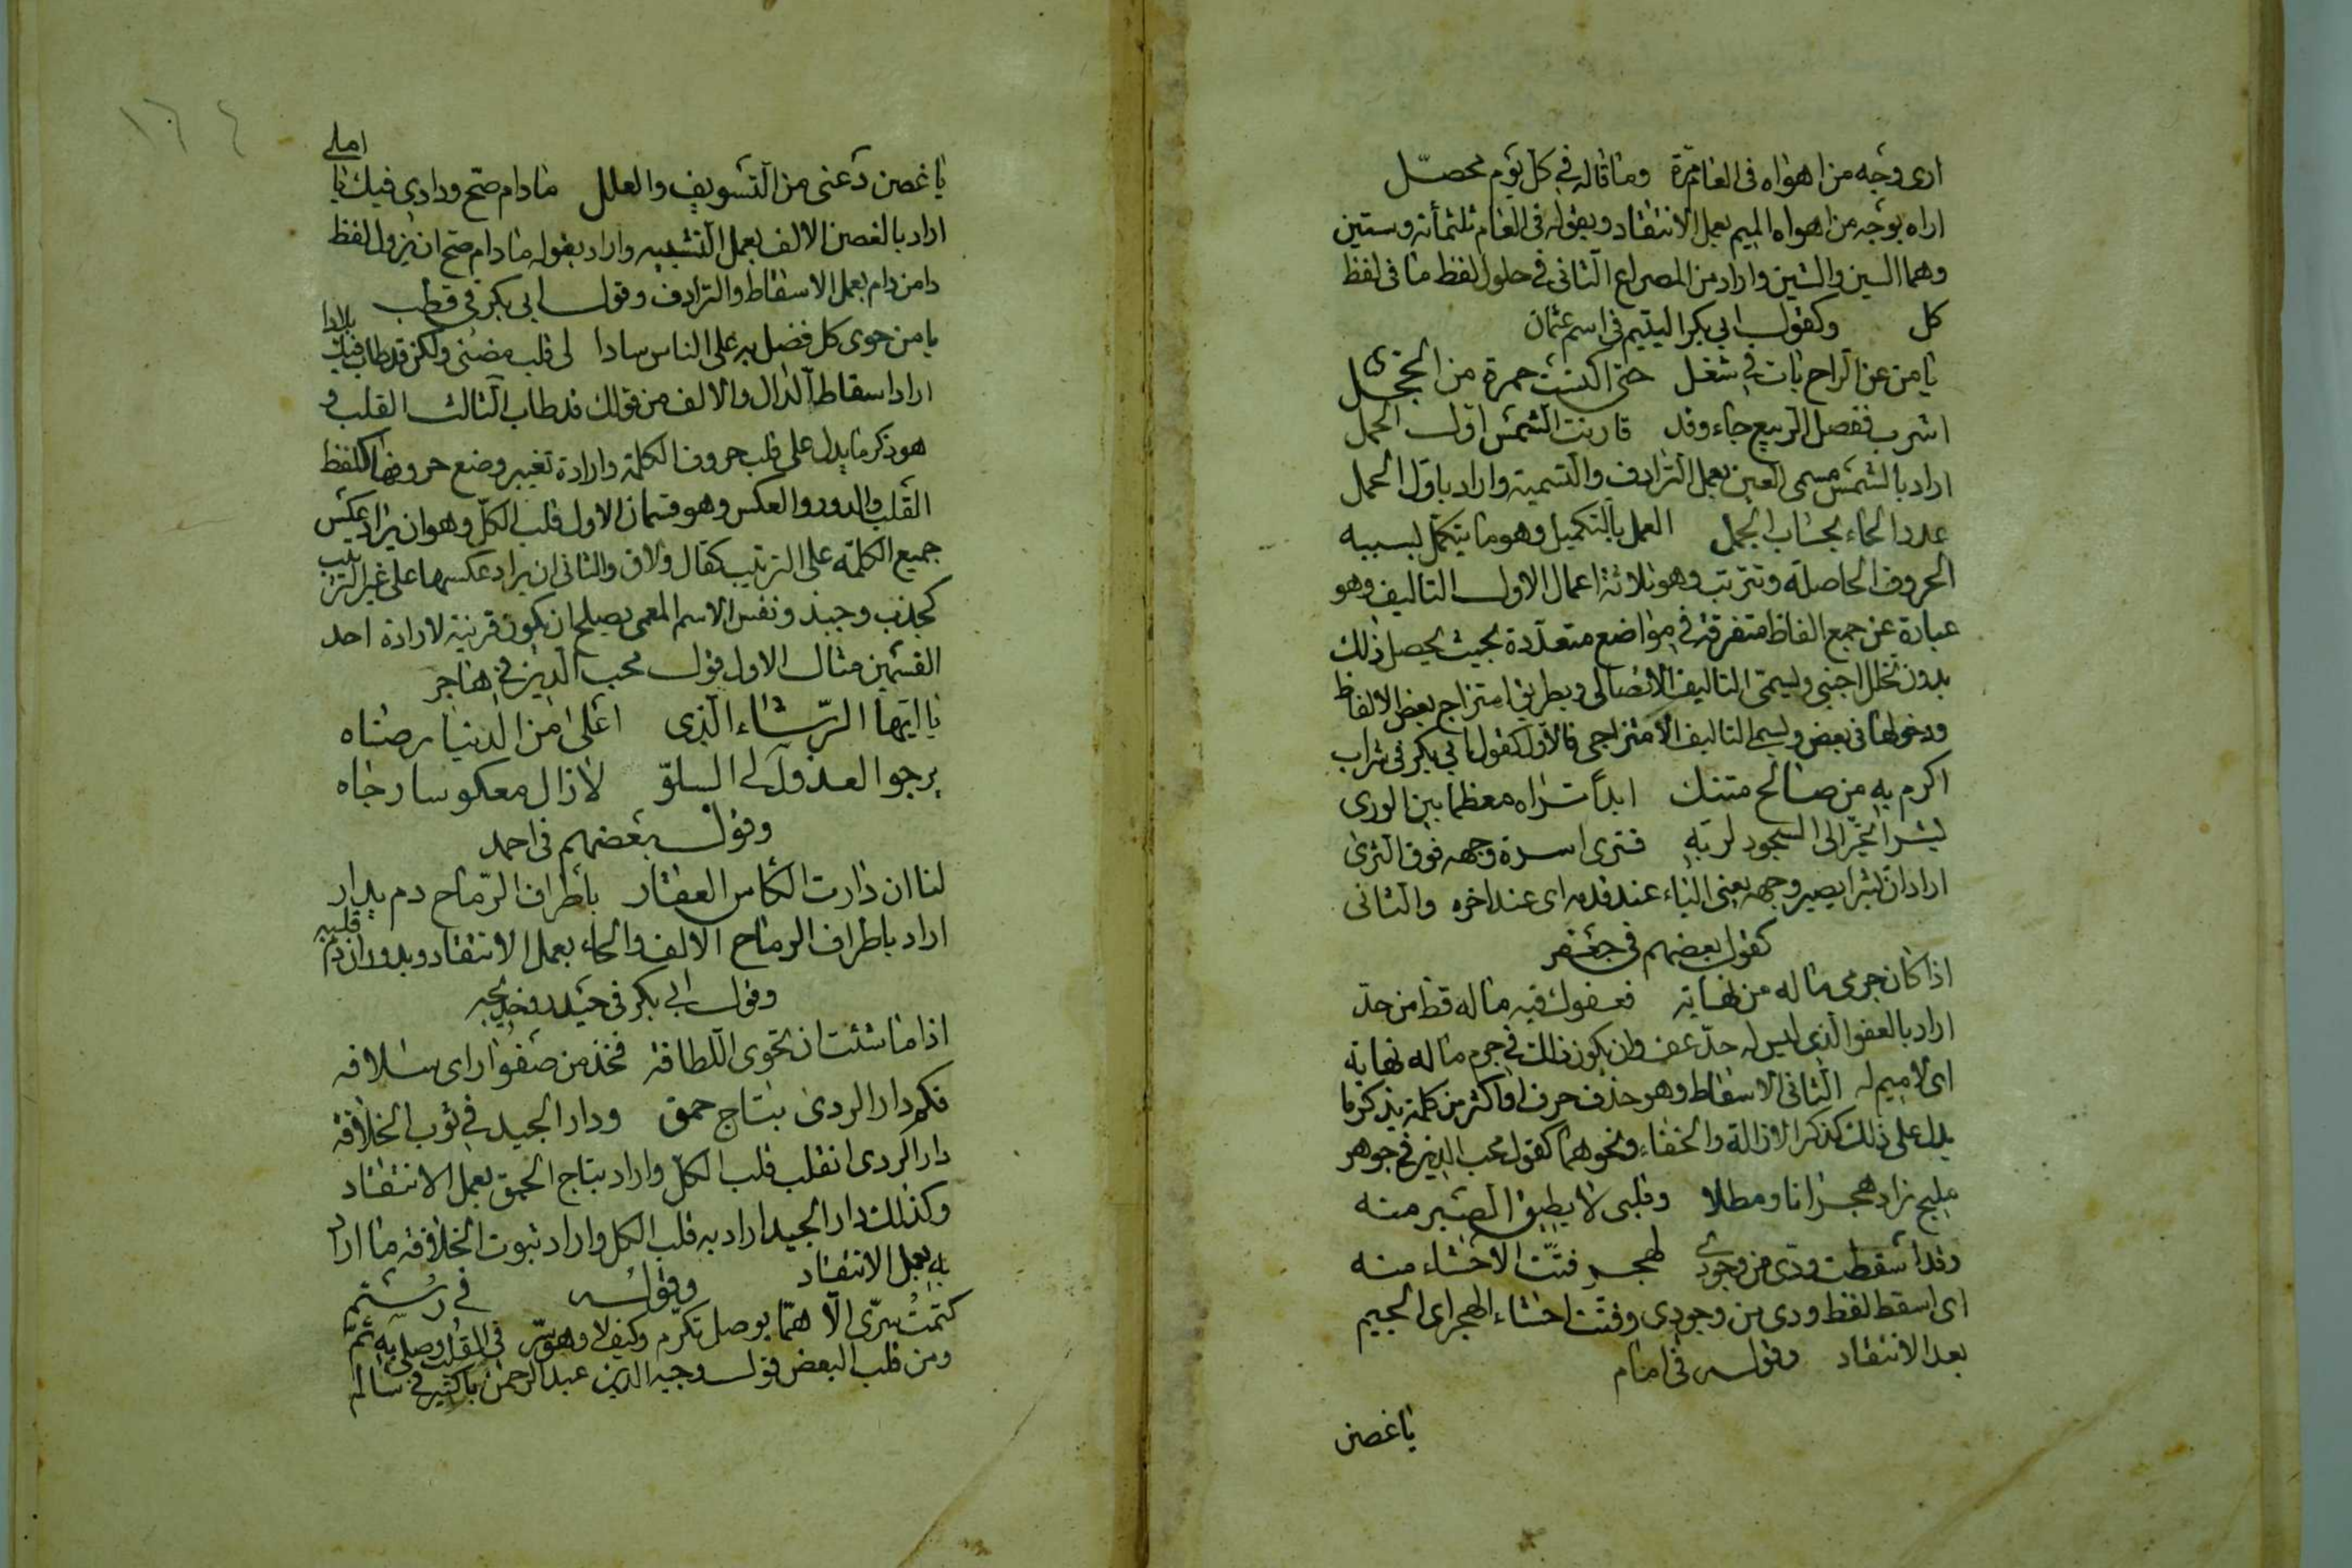 ارى وجه من اهواه فى العام مرّة وما قاله فى كل يوم محصّل
اراد بوجه من اهواه الميم بعمل الانتقاد وبقوله فى العام ثلثمأنة وستين
وهما السين والشين واراد من المصراع الثانى فى حلول لفظ ما فى لفظ
كل وكقول ابى بكر اليتيم فى اسم عثمان
يا من عن الراح بات فى شغل حتى اكتست حمرة من الخجل
اشرب ففصل الربيع جاء وقد قارنت الشمس اوّل الحمل
اراد بالشمس مسمى العين بعمل الترادف والتسمية واراد باوّل الحمل
عدد الحاء بحساب الجمل العمل بالتكميل وهو ما يتكمّل بسببه
الحروف الحاصلة وتترتب وهو ثلاثة اعمال الاول التاليف وهو
عبارة عن جمع الفاظ متفرقة فى مواضع متعدّدة بحيث يحصل ذلك
بدون تخلل اجنبى ويسمى التاليف الاتصالى وبطريق امتزاج بعض الالفاظ
ودخولها فى بعض ويسمى التاليف الامتزاجى فالاول كقول ابى بكر فى شراب
اكرم به من صالح متنسك ابداً تراه معظما بين الورى
بشر اتخرّ الى السجود لربّه فترى اسرة وجهه فوق الثرى
اراد ان بشرا يصير وجهه يعنى الباء عند قدمه اى عند اخره والثانى
كقول بعضهم فى جعفر
اذا كان جرمى ماله من نهاية فعفوك فيه ماله قط من حدّ
اراد بالعفو الذى ليس له حدّ عف وان يكون ذلك فى جرم ماله نهاية
اى لا ميم له الثانى الاسقاط وهو حذف حرف او اكثر من كلمة بذكر ما
يدل على ذلك كذكر الازالة والخفاء ونحوهما كقول محب الدين فى جوهر
مليح زاد هجرانا ومطلا وقلبى لا يطيق الصبر منه
وقد اسقطت ودّى من وجودى لهجر فتّت الاحشاء منه
اى اسقط لفظ ودى من وجودى وفتت احشاء الهجر اى الجيم
بعد الانتقاد وقوله فى امام
يا غصن
١٦٤
يا غصن دعنى من التسويف والعلل ما دام صحّ ودادى فيك يا املى
اراد بالغصن الالف بعمل التشبيه واراد بقوله ما دام صح ان يزول لفظ
دا من دام بعمل الاسقاط والترادف وقول ابى بكر فى قطب
يا من حوى كل فضل به على الناس سادا لى قلب مضنى ولكن قد طاب فيك بلادا
اراد اسقاط الدال والالف من قولك قد طاب الثالث القلب و
هو ذكر ما يدل على قلب حروف الكلمة وارادة تغيير وضع حروفها كلفظ
القلب والدور والعكس وهو قسمان الاول قلب الكلّ وهو ان يراد عكس
جميع الكلمة على الترتيب كقال ولاق والثانى ان يراد عكسها على غير الترتيب
كجذب وجبذ ونفس الاسم المعمى يصلح ان يكون قرينة لارادة احد
القسمين مثال الاول قول محب الدين فى هاجر
يا ايّها الرّشاء الذى اغلى من الدنيا رضاه
يرجو العذول لى السلوّ لا زال معكوسا رجاه
وقول بعضهم فى احمد
لنا ان دارت الكأس العقار باطراف الرّماح دم يدار
اراد باطراف الرماح الالف والحاء بعمل الانتقاد وبدوران دم قلبه
وقول ابى بكر فى حيدر وخديجه
اذا ما شئت ان تحوى اللطافة فخذ من صفو اراى سلافه
فكم دار الردى بتاج حمق ودار الجيد فى ثوب الخلافة
دار الردى انقلب قلب الكل واراد بتاج الحمق بعمل الانتقاد
وكذلك دار الجيد اراد به قلب الكل واراد بثوب الخلافة ما اراد
به بعمل الانتقاد وقوله فى رستم
كتمت سرّى الّا همّا بوصل تكرّم وكيف لا وهو سرّ فى القلب وصلى به تمّ
ومن قلب البعض قول وجيه الدين عبد الرحمن باكثير فى سالم